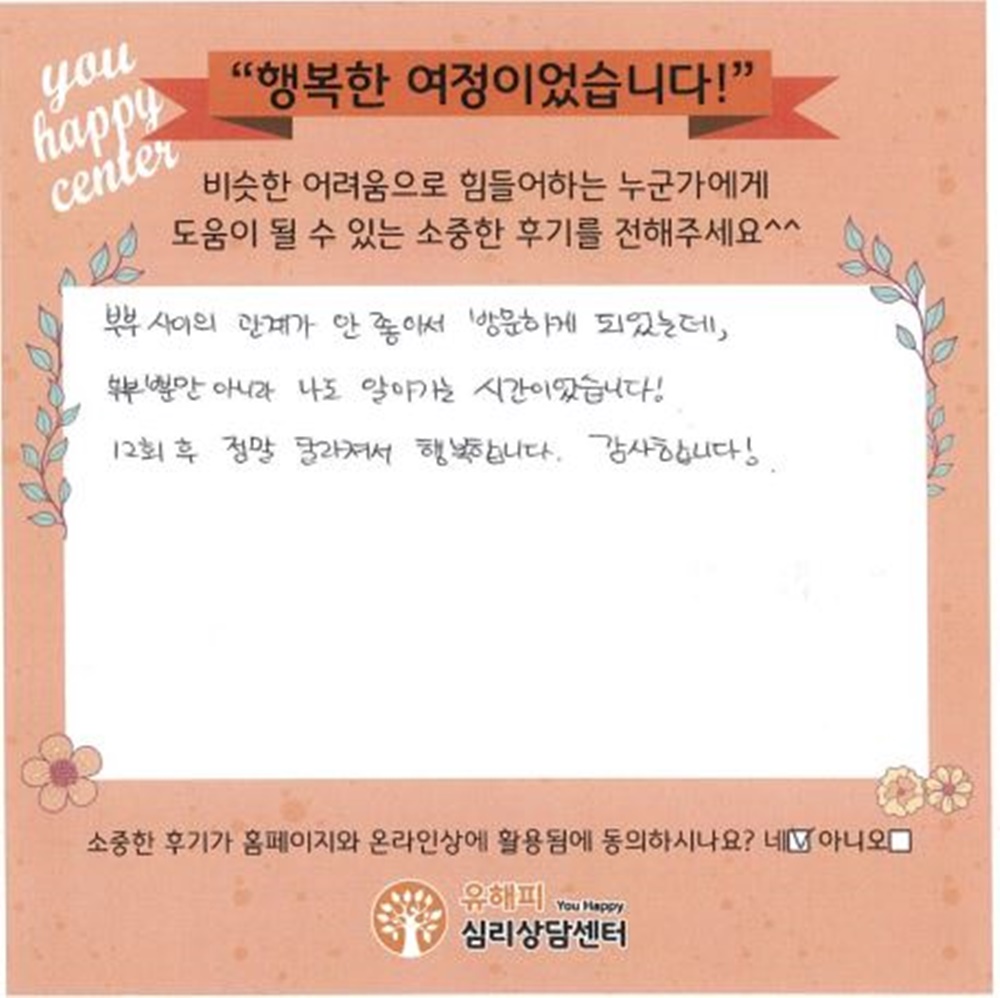 you
happy
center
“행복한 여정이었습니다!”
비슷한 어려움으로 힘들어하는 누군가에게
도움이 될 수 있는 소중한 후기를 전해주세요^^
부부 사이의 관계가 안 좋아서 방문하게 되었는데,
부부뿐만 아니라 나도 알아가는 시간이었습니다!
12회 후 정말 달라져서 행복합니다. 감사합니다!
소중한 후기가 홈페이지와 온라인상에 활용됨에 동의하시나요? 네☑ 아니오☐
유해피 You Happy
심리상담센터